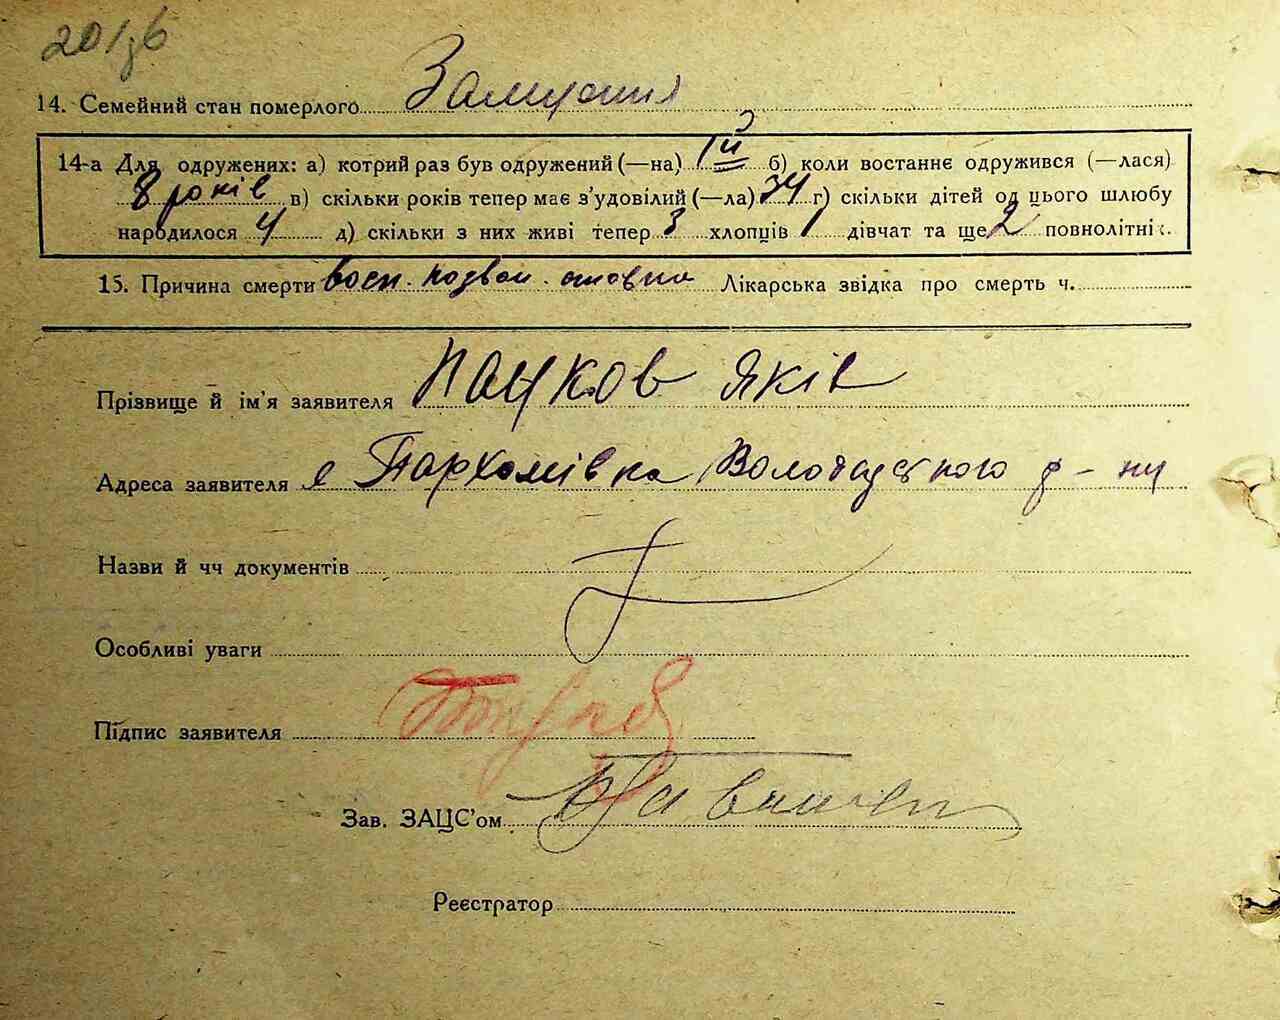 14. Семейний стан померлого Замужня
14-а Для одружених: а) котрий раз був одружений (—на) 1й б) коли востаннє одружився (—лася)
8 років в) скільки років тепер має з'удовілий (—ла) 34 г) скільки дітей од цього шлюбу
народилося 4 д) скільки з них живі тепер 3 хлопців 1 дівчат та ще 2 повнолітні.
15. Причина смерти Лікарська звідка про смерть ч.
Прізвище й ім'я заявителя Яків
Адреса заявителя с Пархомівка Володарського р-ну
Назви й чч документів
Особливі уваги
Підпис заявителя
Зав. ЗАЦС'ом
Реєстратор